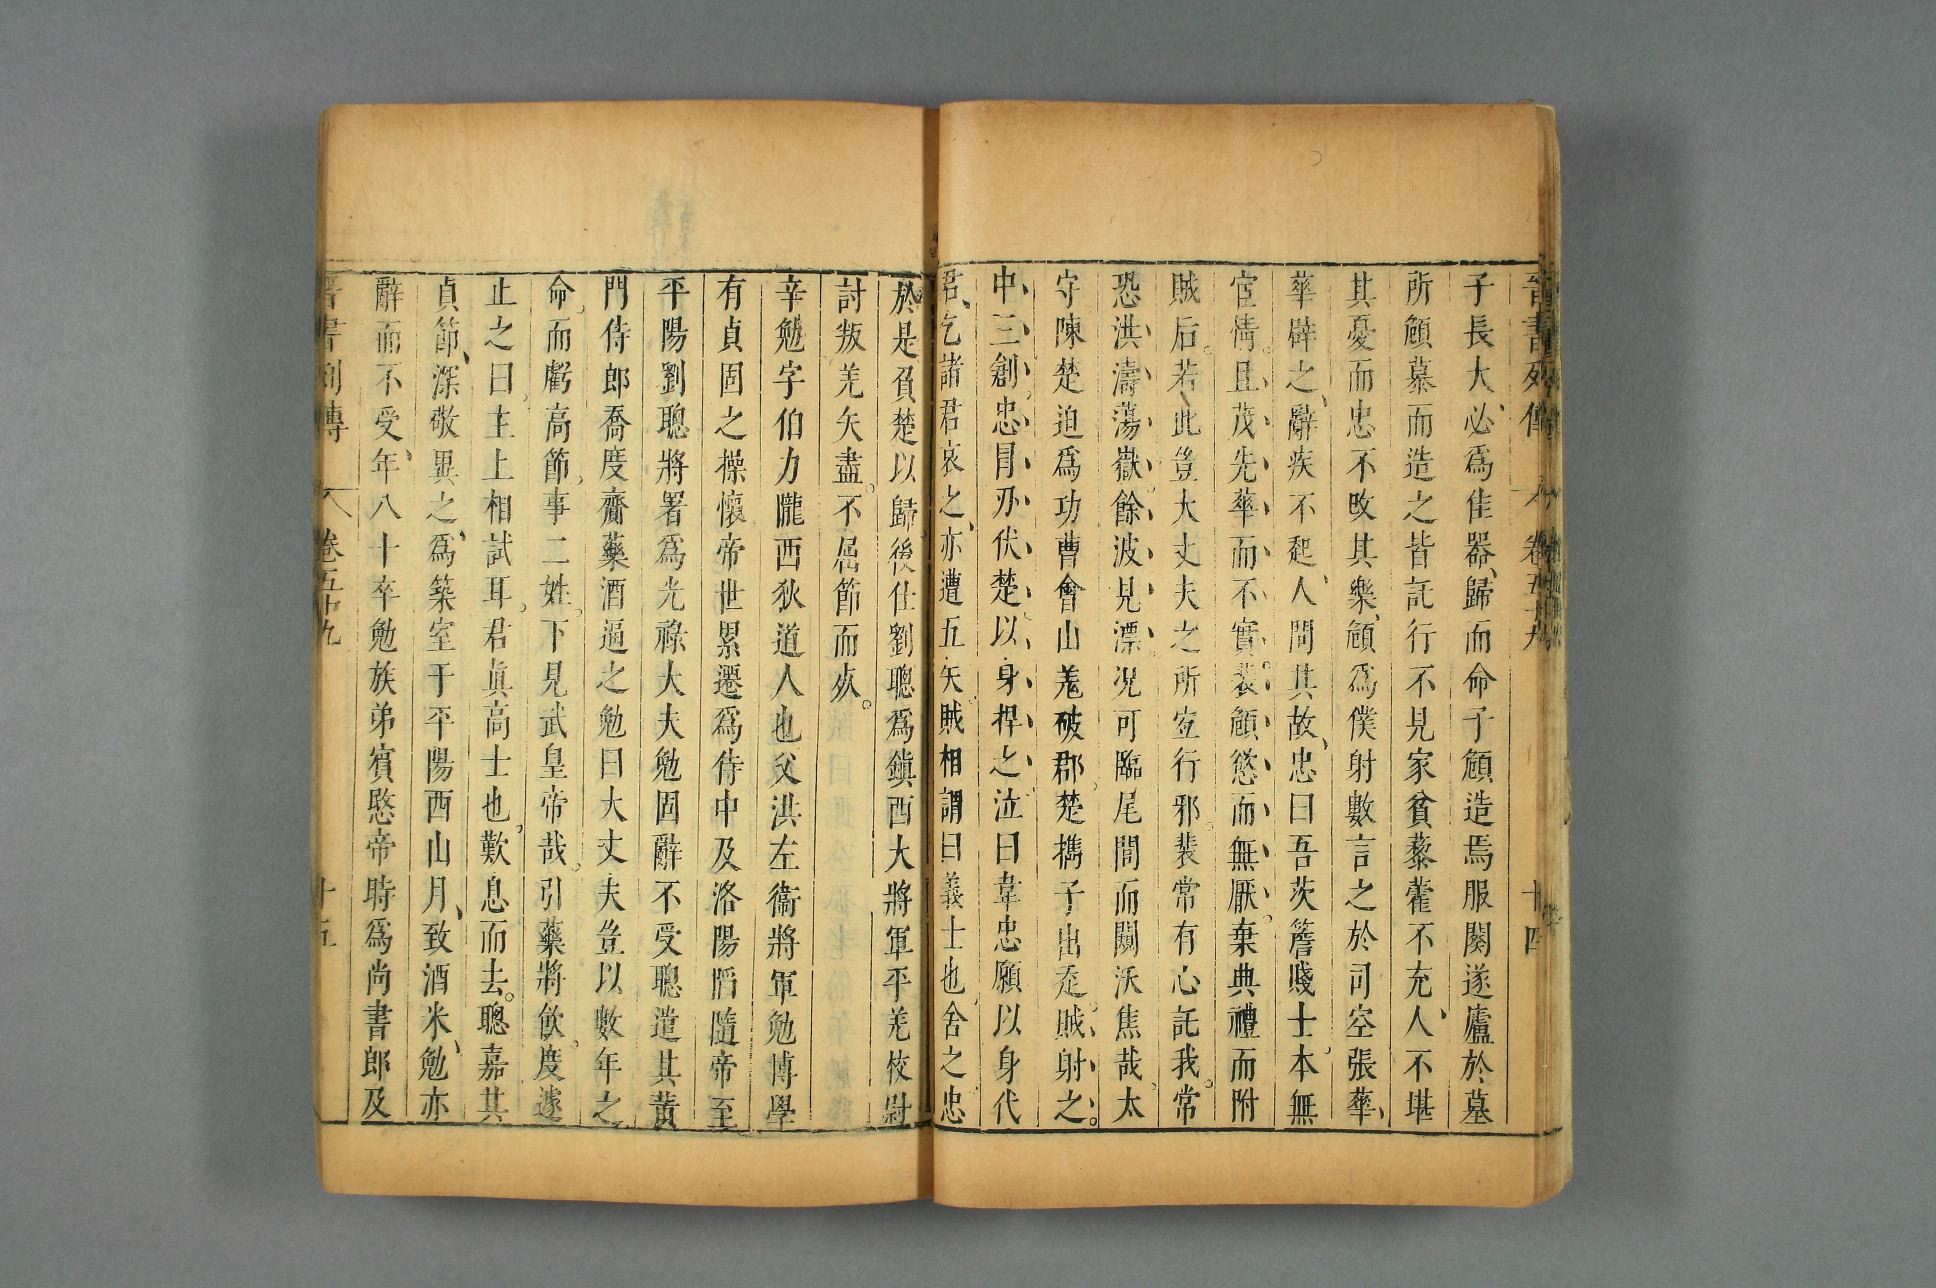 晉書列傳　卷五十九　十四
子長大必爲佳器歸而命子頠造焉服闋遂廬於墓
所頠慕而造之皆託行不見家貧藜藿不充人不堪
其憂而忠不改其樂頠爲僕射數言之於司空張華
華辟之辭疾不起人問其故忠曰吾茨簷賤士本無
宦情且茂先華而不實裴頠慾而無厭棄典禮而附
賊后若此豈大丈夫之所宜行邪裴常有心託我常
恐洪濤蕩嶽餘波見漂况可臨尾閭而闚沃焦哉太
守陳楚迫爲功曹會山羗破郡楚攜子出走賊射之
中三創忠冒刃伏楚以身捍之泣曰韋忠願以身代
君乞諸君哀之亦遭五矢賊相謂曰義士也舍之忠
於是負楚以歸後仕劉聰爲鎭西大將軍平羌校尉
討叛羌矢盡不屈節而死
辛勉字伯力隴西狄道人也父洪左衞將軍勉博學
有貞固之操懷帝世累遷爲侍中及洛陽䧟隨帝至
平陽劉聰將署爲光祿大夫勉固辭不受聰遣其黃
門侍郎喬度齎藥酒逼之勉曰大丈夫豈以數年之
命而虧高節事二姓下見武皇帝哉引藥將飲度遽
止之曰主上相試耳君眞高士也歎息而去聰嘉其
貞節深敬異之爲築室于平陽西山月致酒米勉亦
辭而不受年八十卒勉族弟賓愍帝時爲尚書郎及
晉書列傳　卷五十九　十五